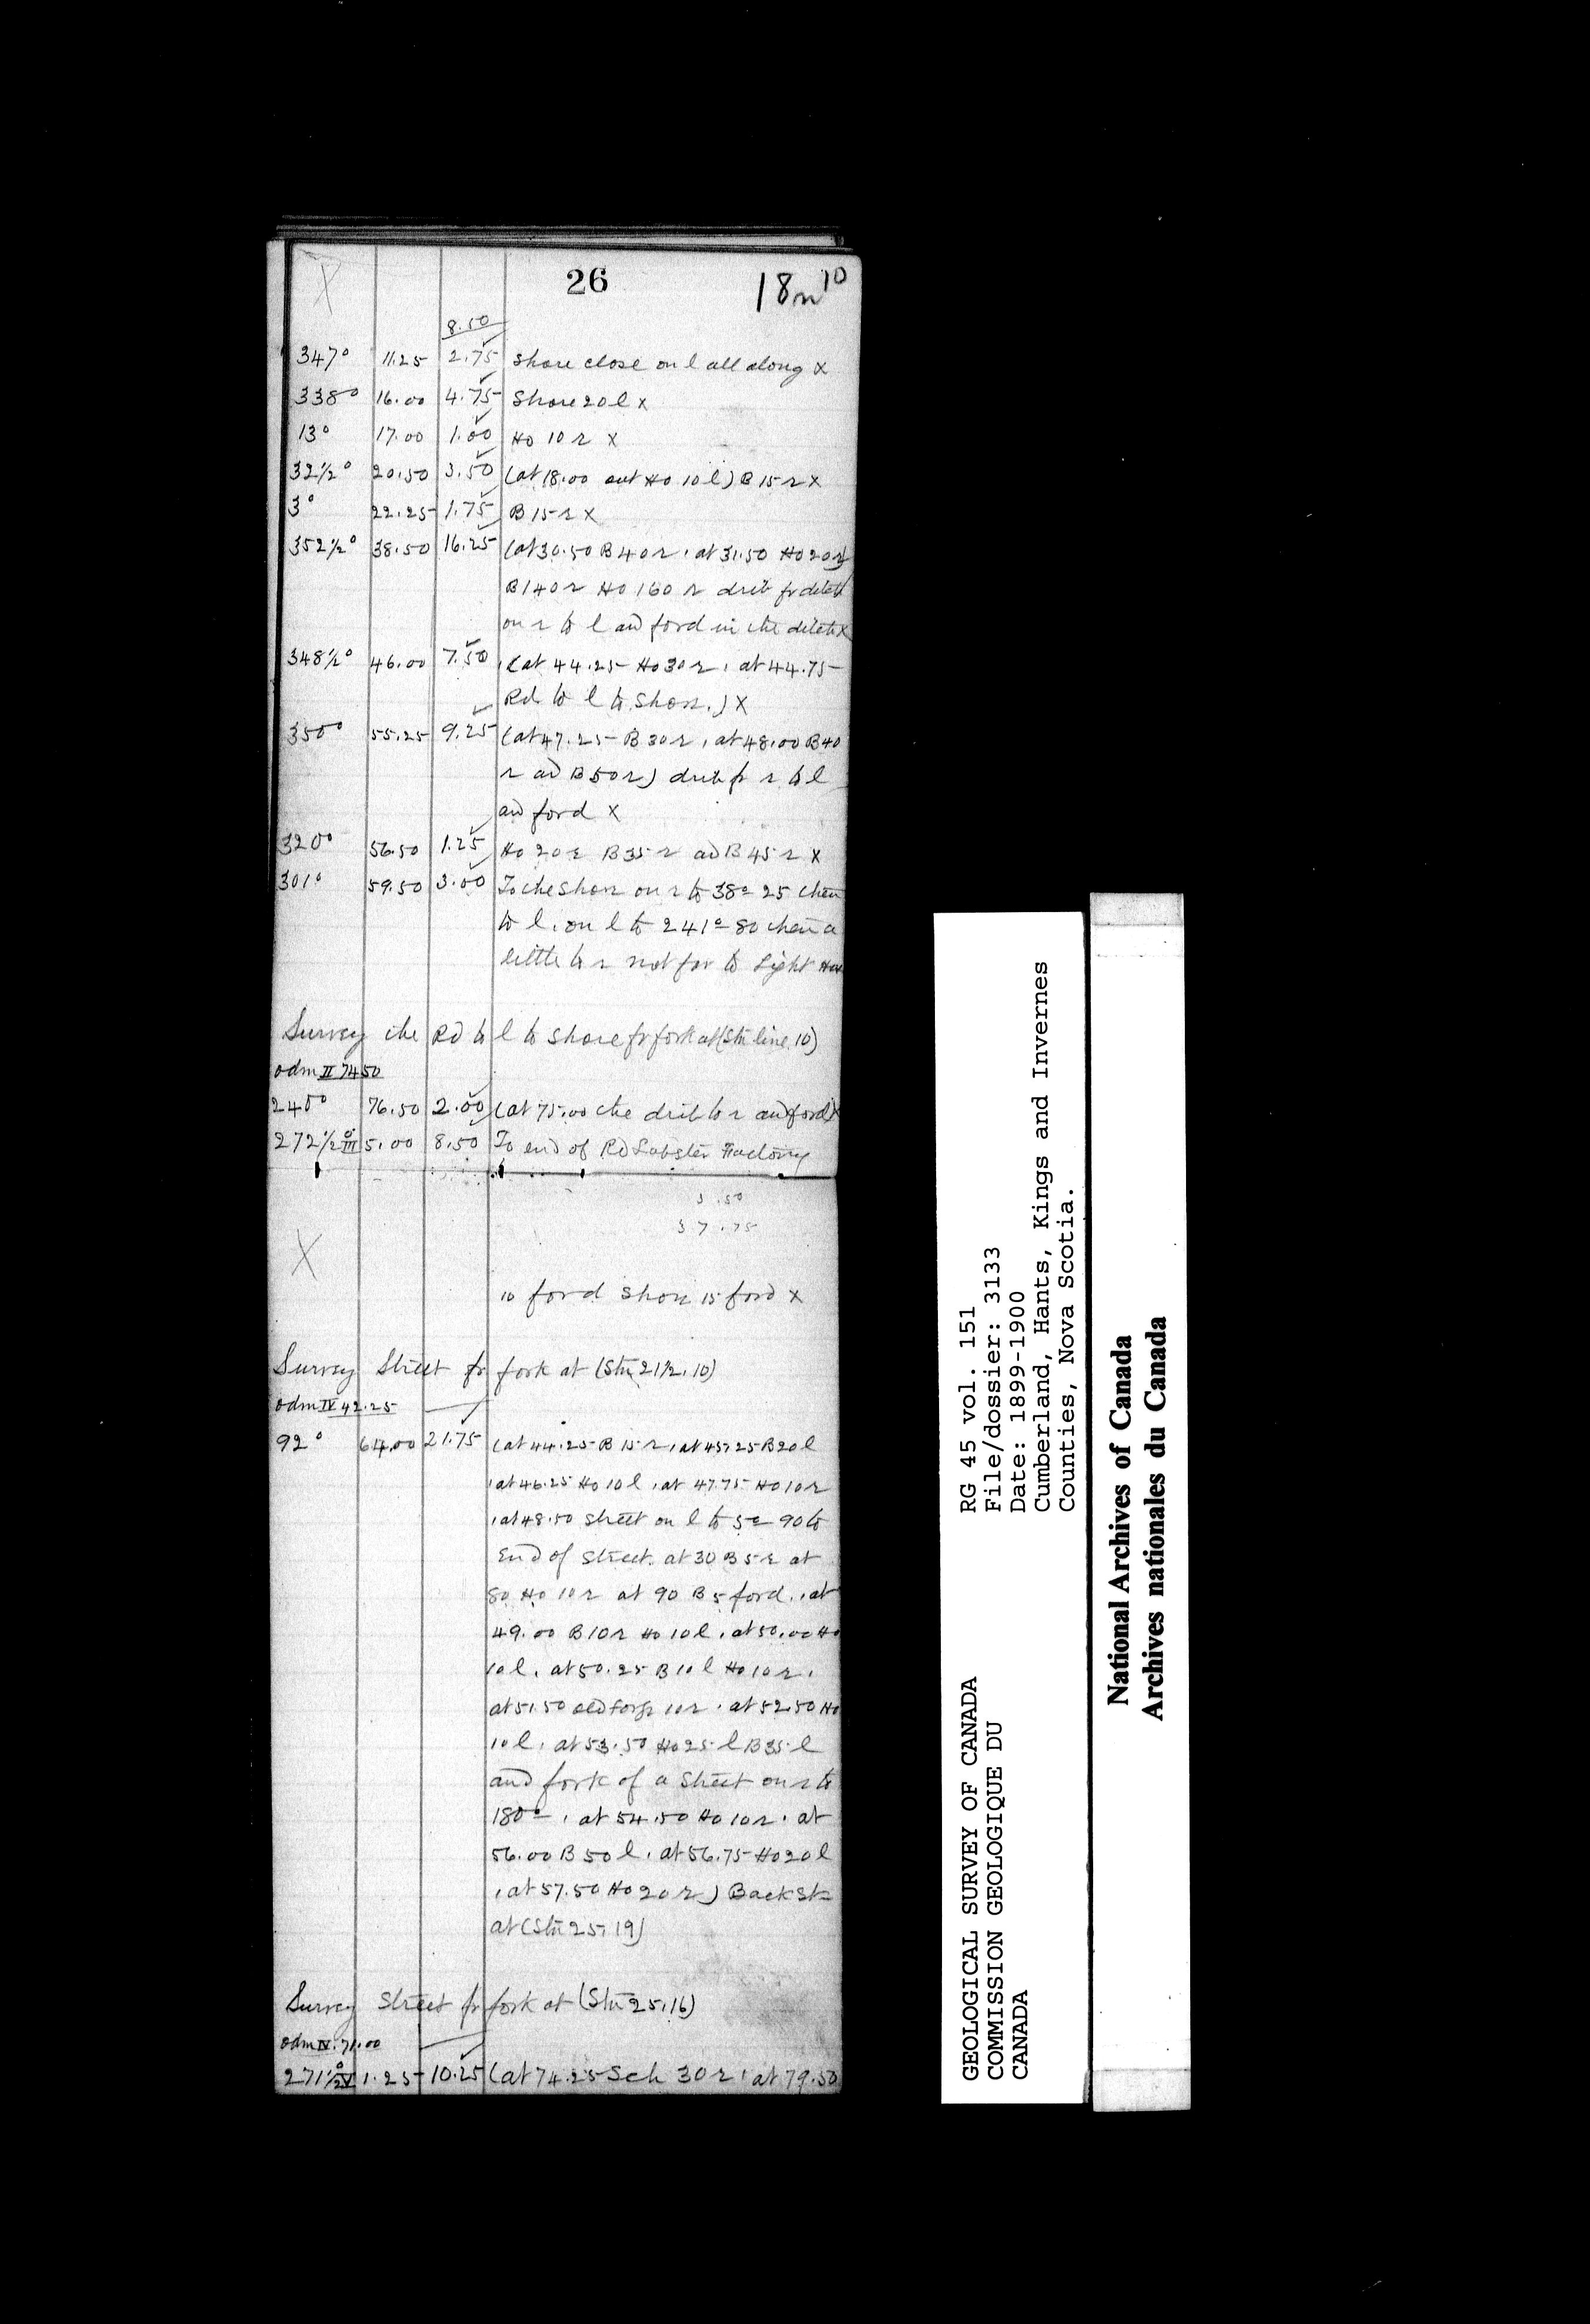 26
18m10
8.50
347° 11.25 2.75 Shore close on l all along x
338° 16.00 4.75 Shore 20 l x
13° 17.00 1.00 Ho 10 r x
32½° 20.50 3.50 (at 18.00 out Ho 10 l) B 15 r x
3° 22.25 1.75 B 15 r x
352½° 38.50 16.25 (at 30.50 B 40 r, at 31.50 Ho 20 r)
B 140 r Ho 160 r
on r to l and ford in the x
348½° 46.00 7.50 (at 44.25 Ho 30 r, at 44.75
Rd to l to Shore.) x
350° 55.25 9.25 (at 47.25 B 30 r, at 48.00 B 40
r ad B 50 r) r to l
and ford x
320° 56.50 1.25 Ho 20 r B 35 r ad B 45 r x
301° 59.50 3.00 To the Shore on r to 38° 25 then
to l, on l to 241° 80 then a
little to r not far to Light Hou
Survey the Rd to l to shore fr fork at (Stn line, 10)
odm II 74.50
240° 76.50 2.00 (at 75.00 the to r and ford) x
272½° III 5.00 8.50 To end of Rd Lobster Factory
3.50
37.75
10 ford Shore 15 ford x
Survey Street fr fork at (Stn 21½, 10)
odm IV 42.25
92° 64.00 21.75 (at 44.25 B 15 r, at 45.25 B 20 l
, at 46.25 Ho 10 l, at 47.75 Ho 10 r
, at 48.50 Street on l to 5° 90 to
End of Street. at 30 B 5 r at
80 Ho 10 r at 90 B 5 ford., at
49.00 B 10 r Ho 10 l, at 50.00 Ho
10 l, at 50.25 B 10 l Ho 10 r,
at 51.50 old forge 10 r, at 52.50 Ho
10 l, at 53.50 Ho 25 l B 35 l
and fork of a Street on r to
180°, at 54.50 Ho 10 r, at
56.00 B 50 l, at 56.75 Ho 20 l
, at 57.50 Ho 20 r) Back St
at (Stn 25, 19)
Survey Street fr fork at (Stn 25, 16)
odm IV. 71.00
271½° V 1.25 10.25 (at 74.25 Sch 30 r, at 79.50
GEOLOGICAL SURVEY OF CANADA
COMMISSION GEOLOGIQUE DU
CANADA
RG 45 vol. 151
File/dossier: 3133
Date: 1899-1900
Cumberland, Hants, Kings and Invernes
Counties, Nova Scotia.
National Archives of Canada
Archives nationales du Canada